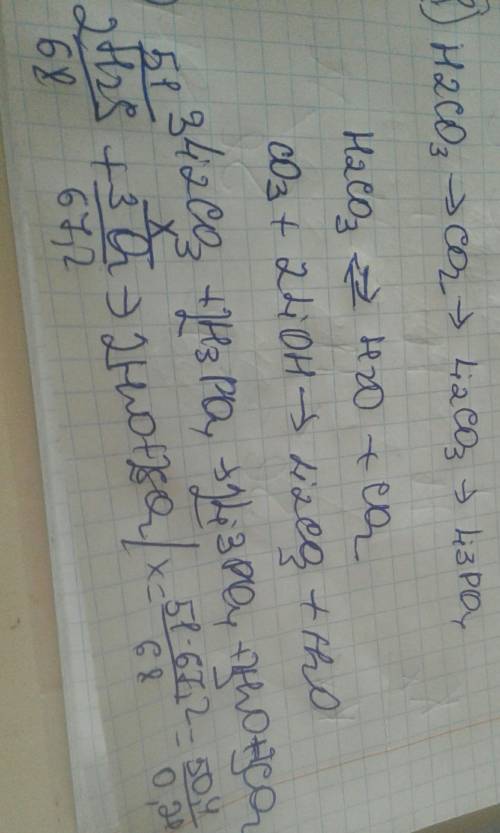 H2CO3 → CO2 → Li2CO3 → Li3PO4
H2CO3 ⇄ H2O + CO2
CO3 + 2LiOH → Li2CO3 + H2O
3Li2CO3 + 2H3PO4 → 2Li3PO4 + 3H2O + 3CO2
51 x
2H2S + 3O2 → 2H2O + 2SO2 | x = 51 · 67,2 / 68 = 50,4
68 67,2